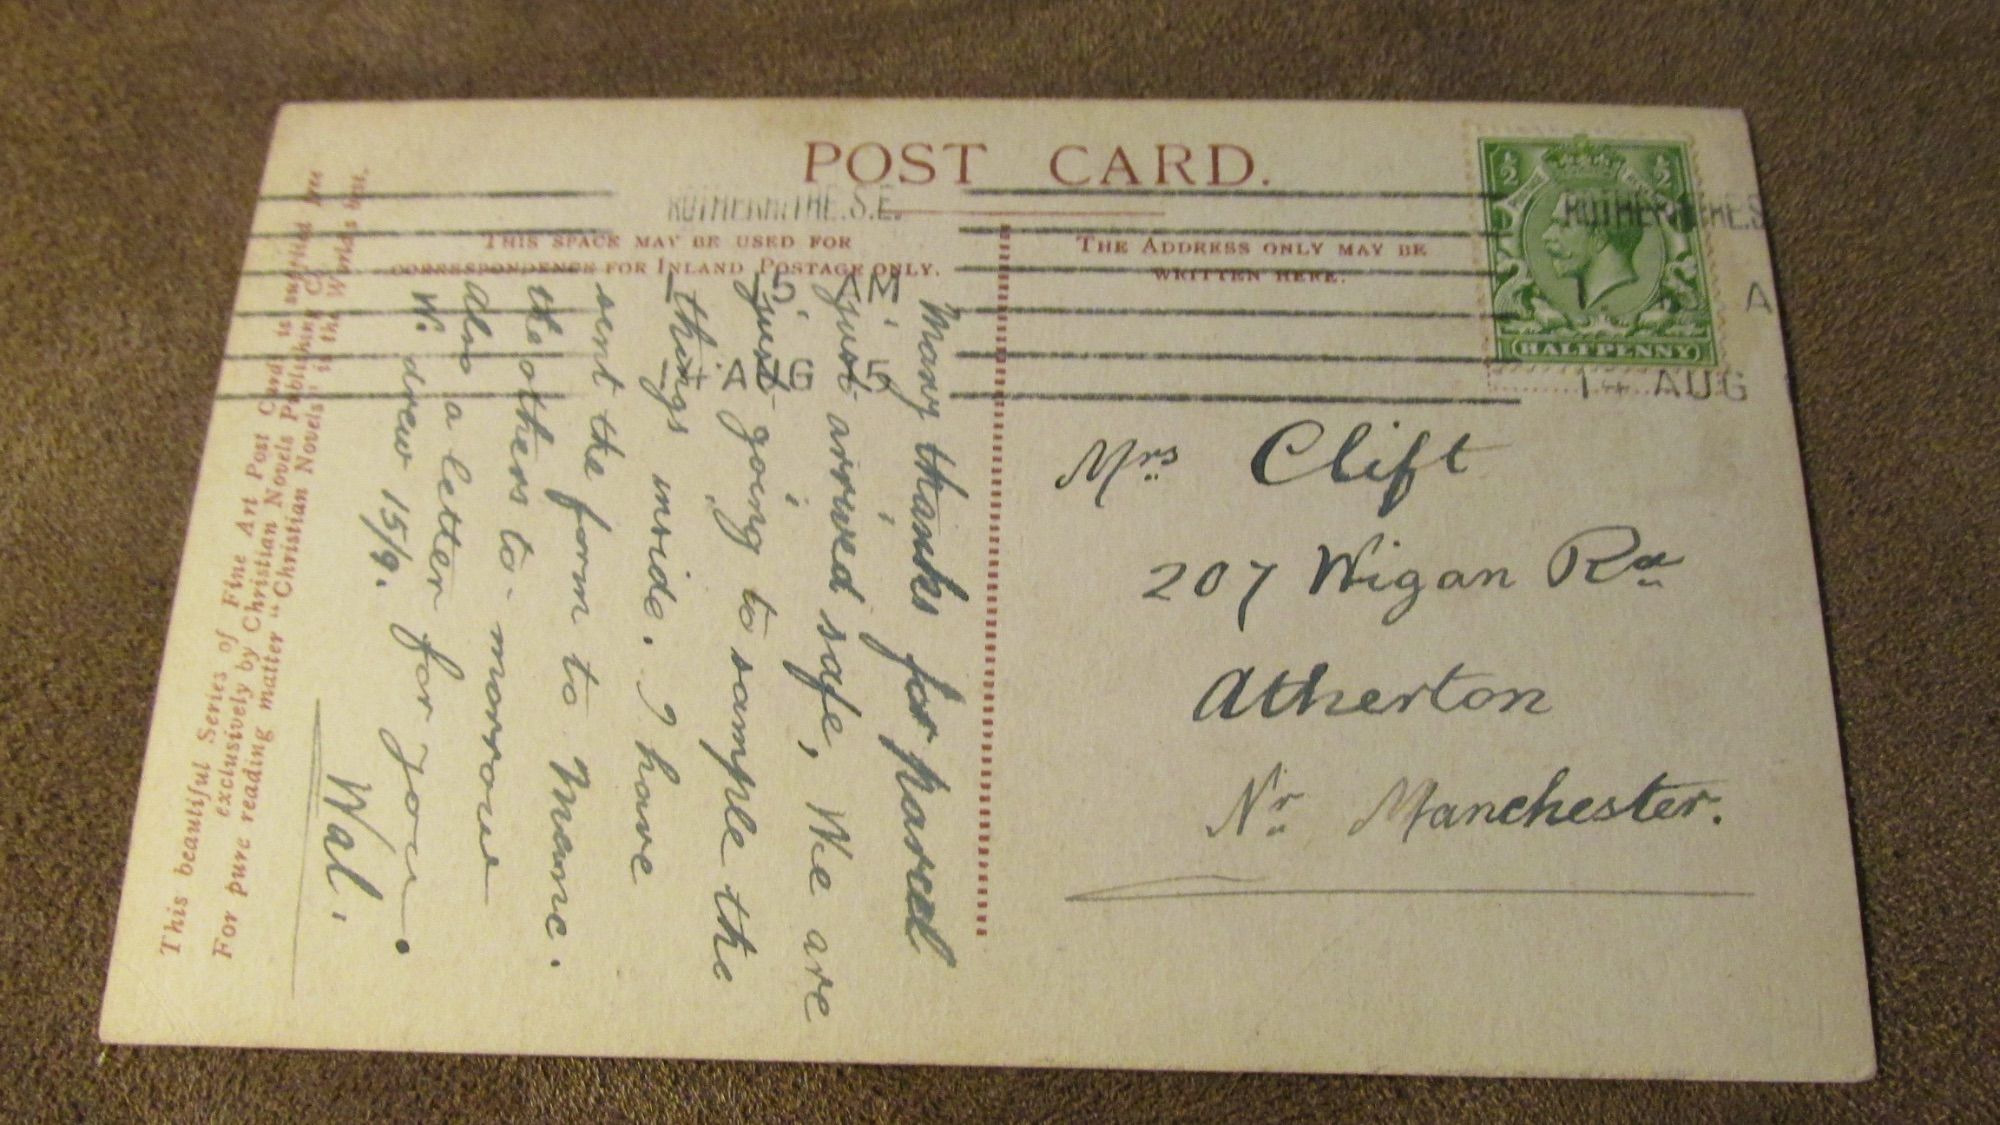 POST CARD.
ROTHERHITHE.S.E.
15 AM
14 AUG 15
THIS SPACE MAY BE USED FOR
CORRESPONDENCE FOR INLAND POSTAGE ONLY.
THE ADDRESS ONLY MAY BE
WRITTEN HERE.
½ ½
HALFPENNY
ROTHERHITHE.S
A
14 AUG
Many thanks for parcel
just arrived safe, We are
just going to sample the
things inside. I have
sent the form to
the others to-morrow
Also a letter for you.
W. drew 15/9.
Wal.
Mrs Clift
207 Wigan Rd
Atherton
Nr Manchester.
This beautiful Series of Fine Art Post Cards is supplied free
exclusively by Christian Novels Publishing Co.
For pure reading matter "Christian Novels" is the World's best.